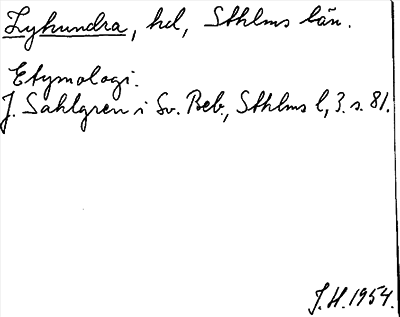 Lyhundra, hd, Sthlms län.
Etymologi.
J. Sahlgren i Sv. Beb., Sthlms l, 3. s. 81.
J. H. 1954.